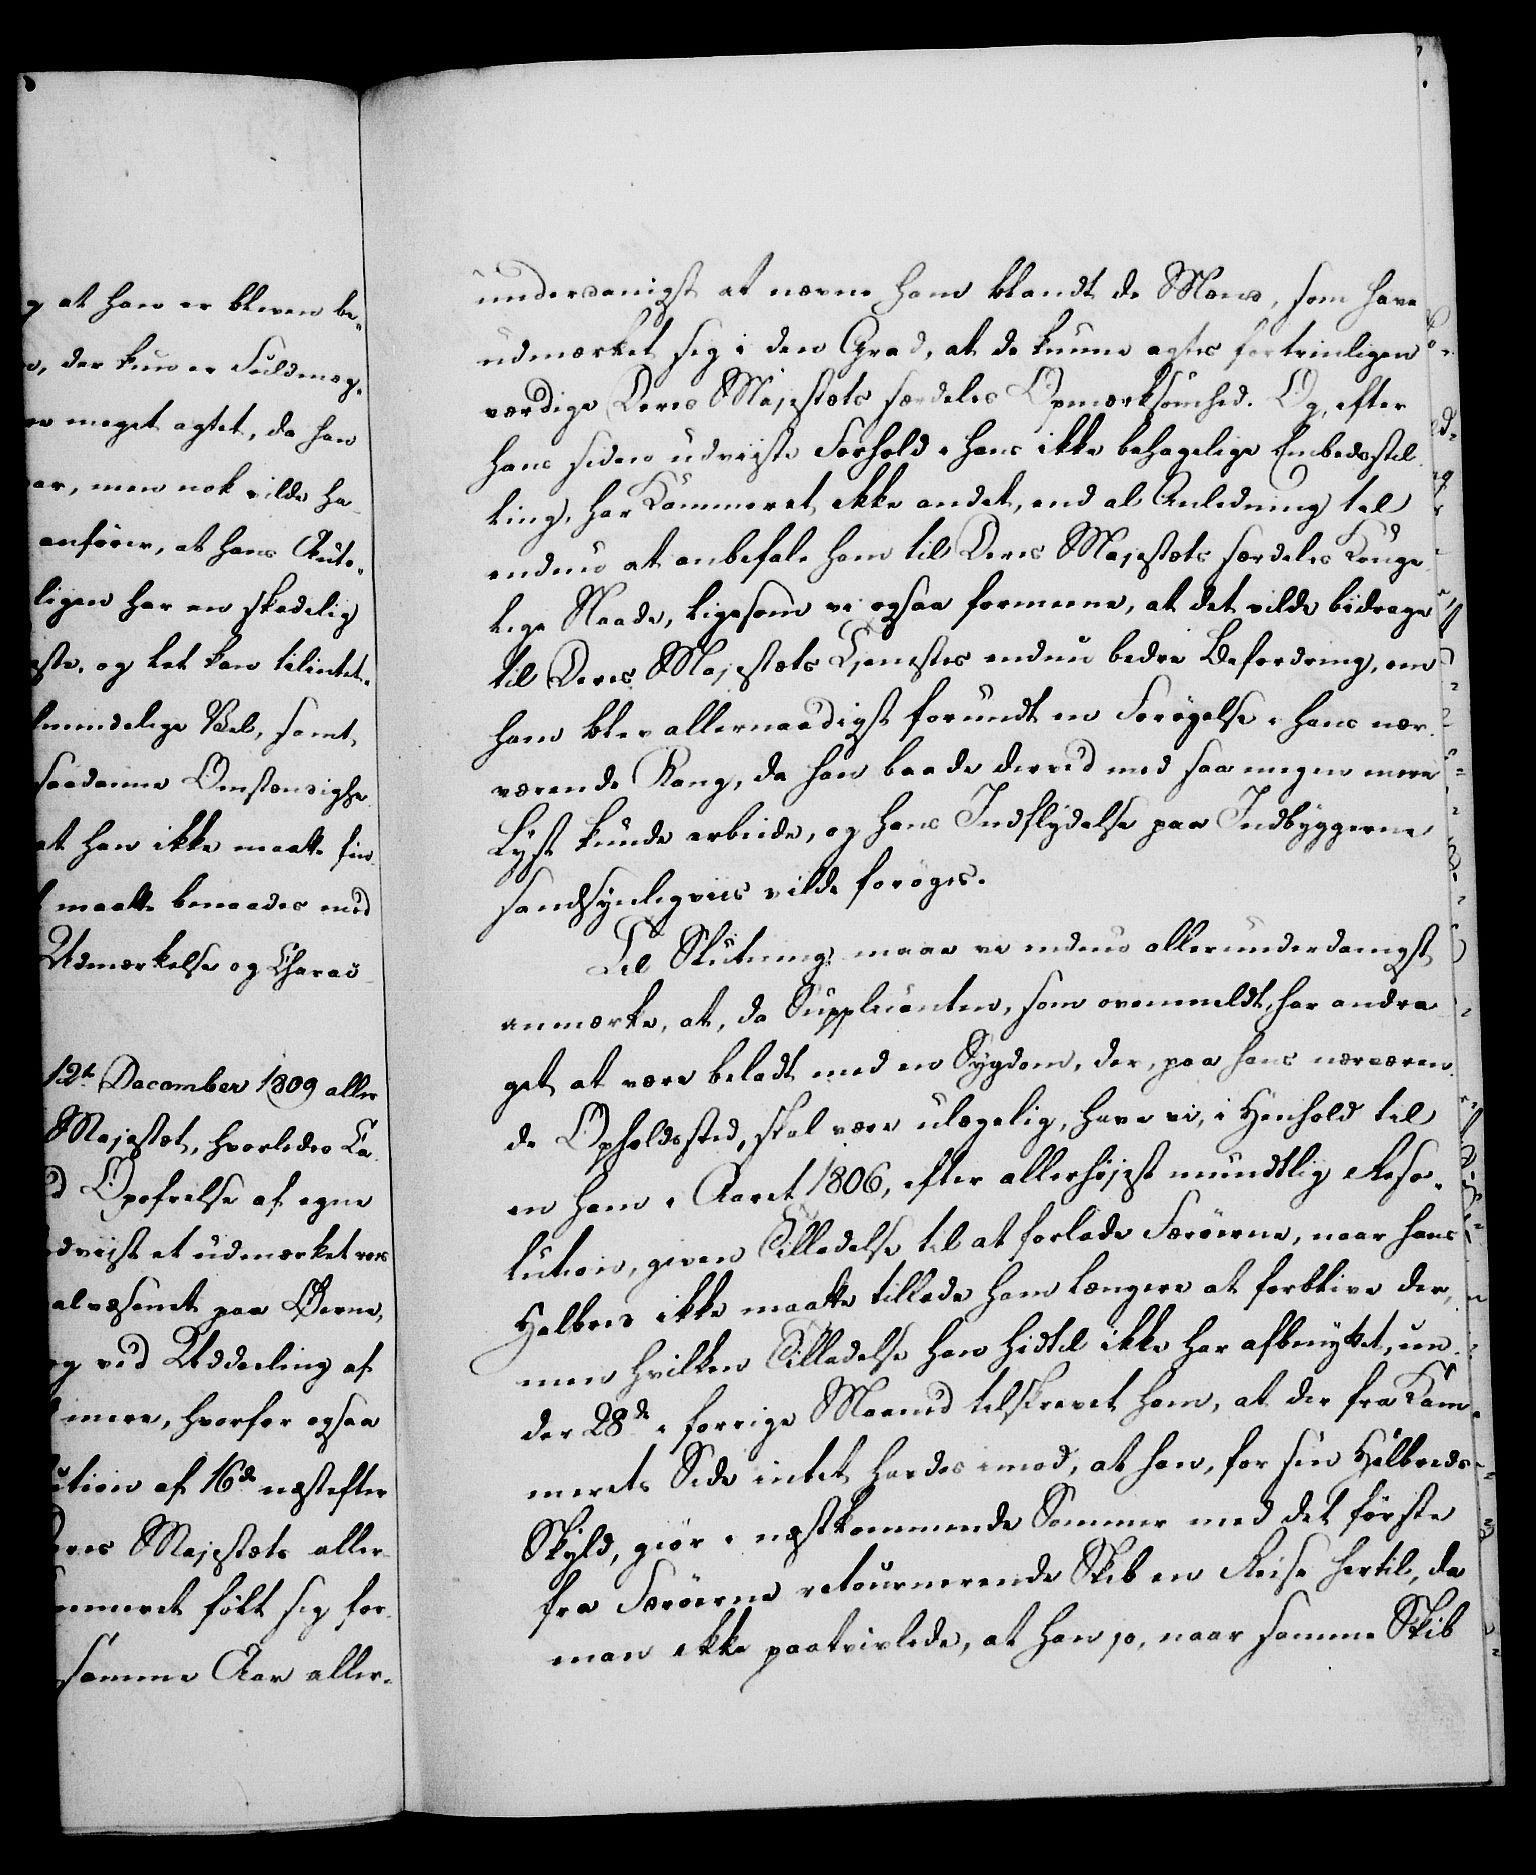 at han er bleven be-
der kun er Fuldmæg-
meget agtet, da han
men nok vilde ha-
anfører, at hans Auto-
ligen har en skadelig
og let kan tilintet-
mindelige Vel, samt
saadanne Omstændighe-
at han ikke maatte fin-
maatte benaades med
Udmærkelse og Charac-
12te December 1809 aller
Majestæt, hvorledes La
Opofrelse af egne
udviist et udmærket
alvæsenet paa Øerne,
og ved Uddeeling af
mere, hvorfor ogsaa
lution af 16de næstefter
Deres Majestæts aller-
meret følt sig for-
samme Aar aller-
underdanigst at nævne ham blandt de Mænd, som have
udmærket sig i den Grad, at de kunne agtes fortrinligen
værdige Deres Majestæts særdeles Opmærksomhed. Og, efter
hans siden udviiste Forhold i hans ikke behagelige Embedsstil-
ling, har Kammeret ikke andet, end al Anledning til
endnu at anbefale ham til Deres Majestæts særdeles Konge-
lige Naade, ligesom vi ogsaa formeene, at det vilde bidrage
til Deres Majestæts Tjenestes endnu bedre Befordring, om
ham blev allernaadigst forundt en Forøgelse i hans nær-
værende Rang, da han baade derved med saa megen mere
Lyst kunde arbeide, og hans Indflydelse paa Indbyggerne
sandsynligviis vilde forøges.
Til Slutning maae vi endnu allerunderdanigst
anmærke, at, da Supplicanten, som ovenmeldt, har andra-
get at være beladt med en Sygdom, der, paa hans nærværen-
de Opholdssted, skal være ulægelig, have vi, i Henhold til
en ham i Aaret 1806, efter allerhøjest mundtlig Reso-
lution, given Tilladelse til at forlade Færøerne, naar hans
Helbred ikke maatte tillade ham længere at forblive der,
men hvilken Tilladelse han hidtil ikke har afbenyttet, un-
der 28de i forrige Maaned tilskrevet ham, at der fra Kam-
merets Side intet havdes imod, at han, for sin Helbreds
Skyld, giør i næstkommende Sommer med det første
fra Færøerne retournerende Skib en Reise hertil, da
man ikke paatvivlede, at han jo, naar samme Skib